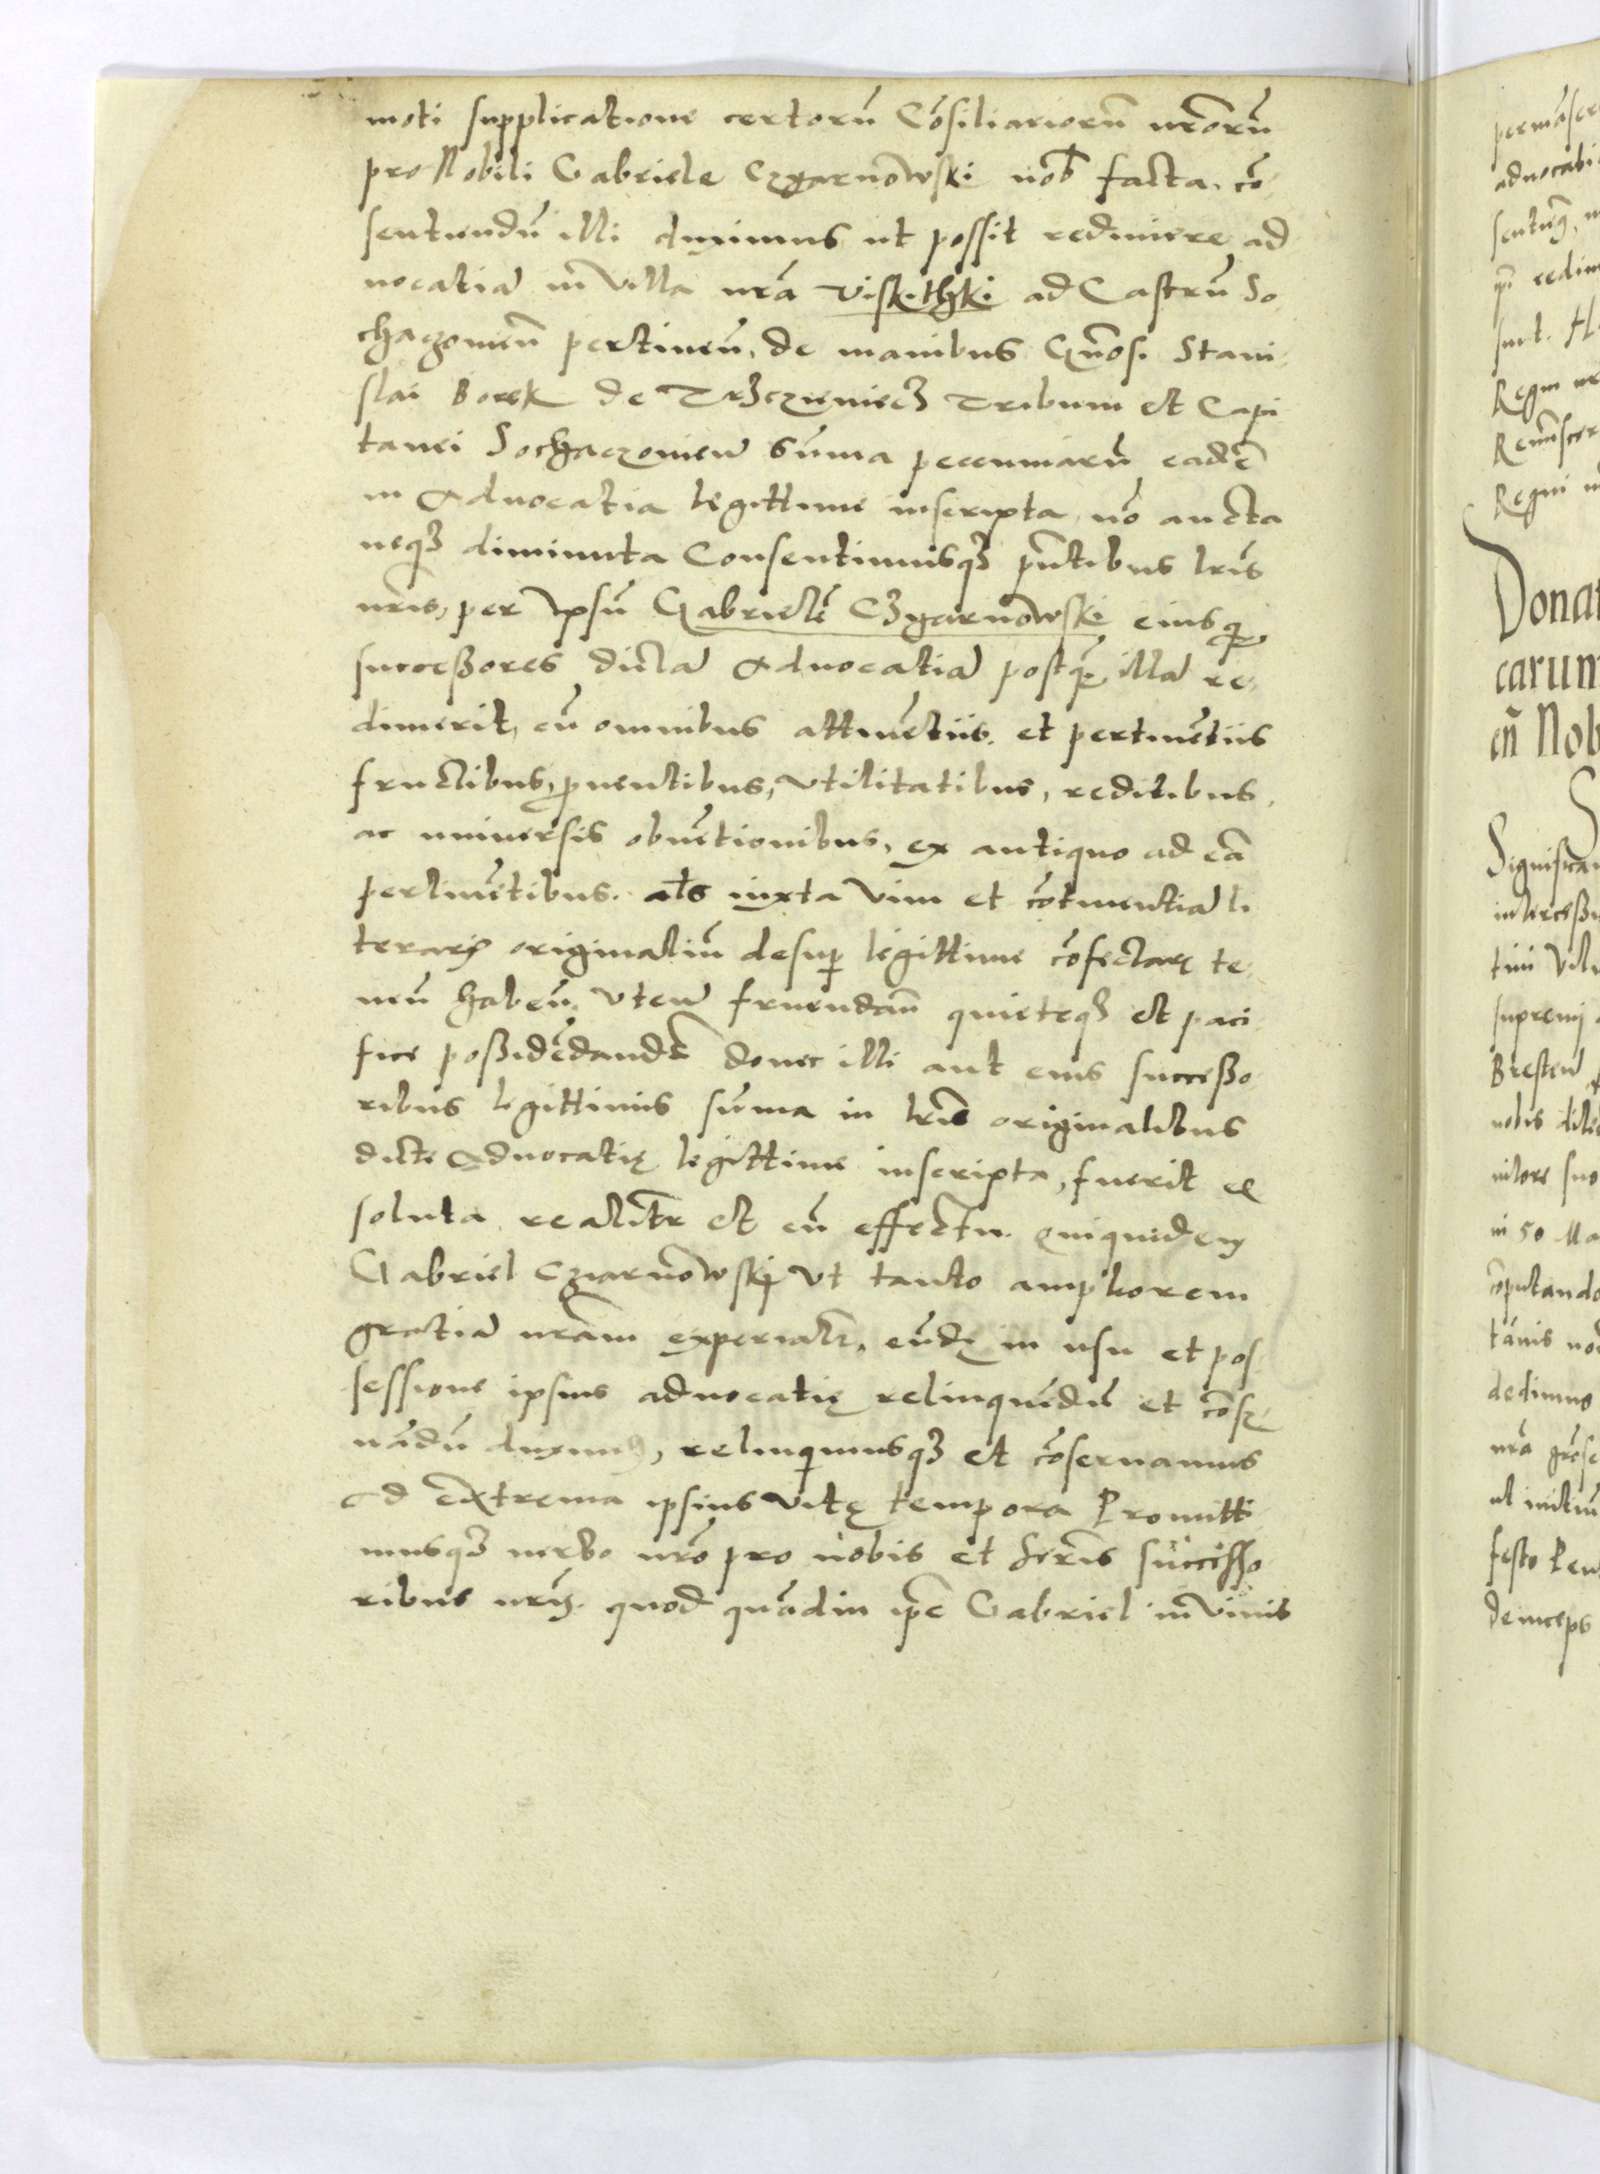 moti supplicatione certorū Cōsiliariorū nr̄orū
pro Nobili Gabriele Czarnowski nob̄ facta. cō
sentiendū illi duximus ut possit redimere ad
uocatiā in Villa nr̄a Viskithki ad Castrū So
chazouien̄ pertinen̄. de manibus Gn̄osi Stani
slai Borek de Trzczieniecz Tribuni et Capi
tanei Sochaczouien̄ Sūma pecuniarū eadē
in Aduocatia legittime inscripta, nō aucta
neqꝫ diminuta Consentimusqꝫ pn̄tibus lr̄is
nr̄is, per ipsū Gabrielē Czarnowski eiusqꝫ
successores dictā Aduocatiā postq̄ illā re
dimerit, cū omnibus attinētiis. et pertinētiis
fructibus, ꝓuentibus, Vtilitatibus, reditibus,
ac uniuersis obuētionibus, ex antiquo ad eā
pertinētibus. al̄s iuxta Vim et cōtinentiā li
terarꝝ originaliū desuꝑ legittime cōfectarꝝ te
nen̄ haben̄. Vten̄ fruendam̄ quieteqꝫ et paci
fice possidēdandē donec illi aut eius successo
ribus legittimis sūma in lr̄is originalibus
dicte Aduocatię legittime inscripta, fuerit ex
soluta realitr̄ et cū effectu. quiquidem
Gabriel Cziarnowskj Vt tanto ampliorem
gratiā nr̄am experiatr̄, eūdē in usu et pos
sessione ipsius aduocatię relinquēdū et cōser
uādū duximus, relinquimusqꝫ et cōseruamus
ad extrema ipsius Vitę tempora Promitti
musqꝫ uerbo nr̄o pro nobis et Sern̄is successo
ribus nr̄is. quod quādiu ip̄e Gabriel in Viuis
permāser
aduocati
redim
sunt.
Regni
Regni
Donat
carum
cū Nob
Significa
intercessi
tini
supremj
Bresten̄
nobis dile
nitore suo
in 50 Ma
cōputando
tāuis nō
dedimus
nr̄a
ut
festo Pen
deinceps